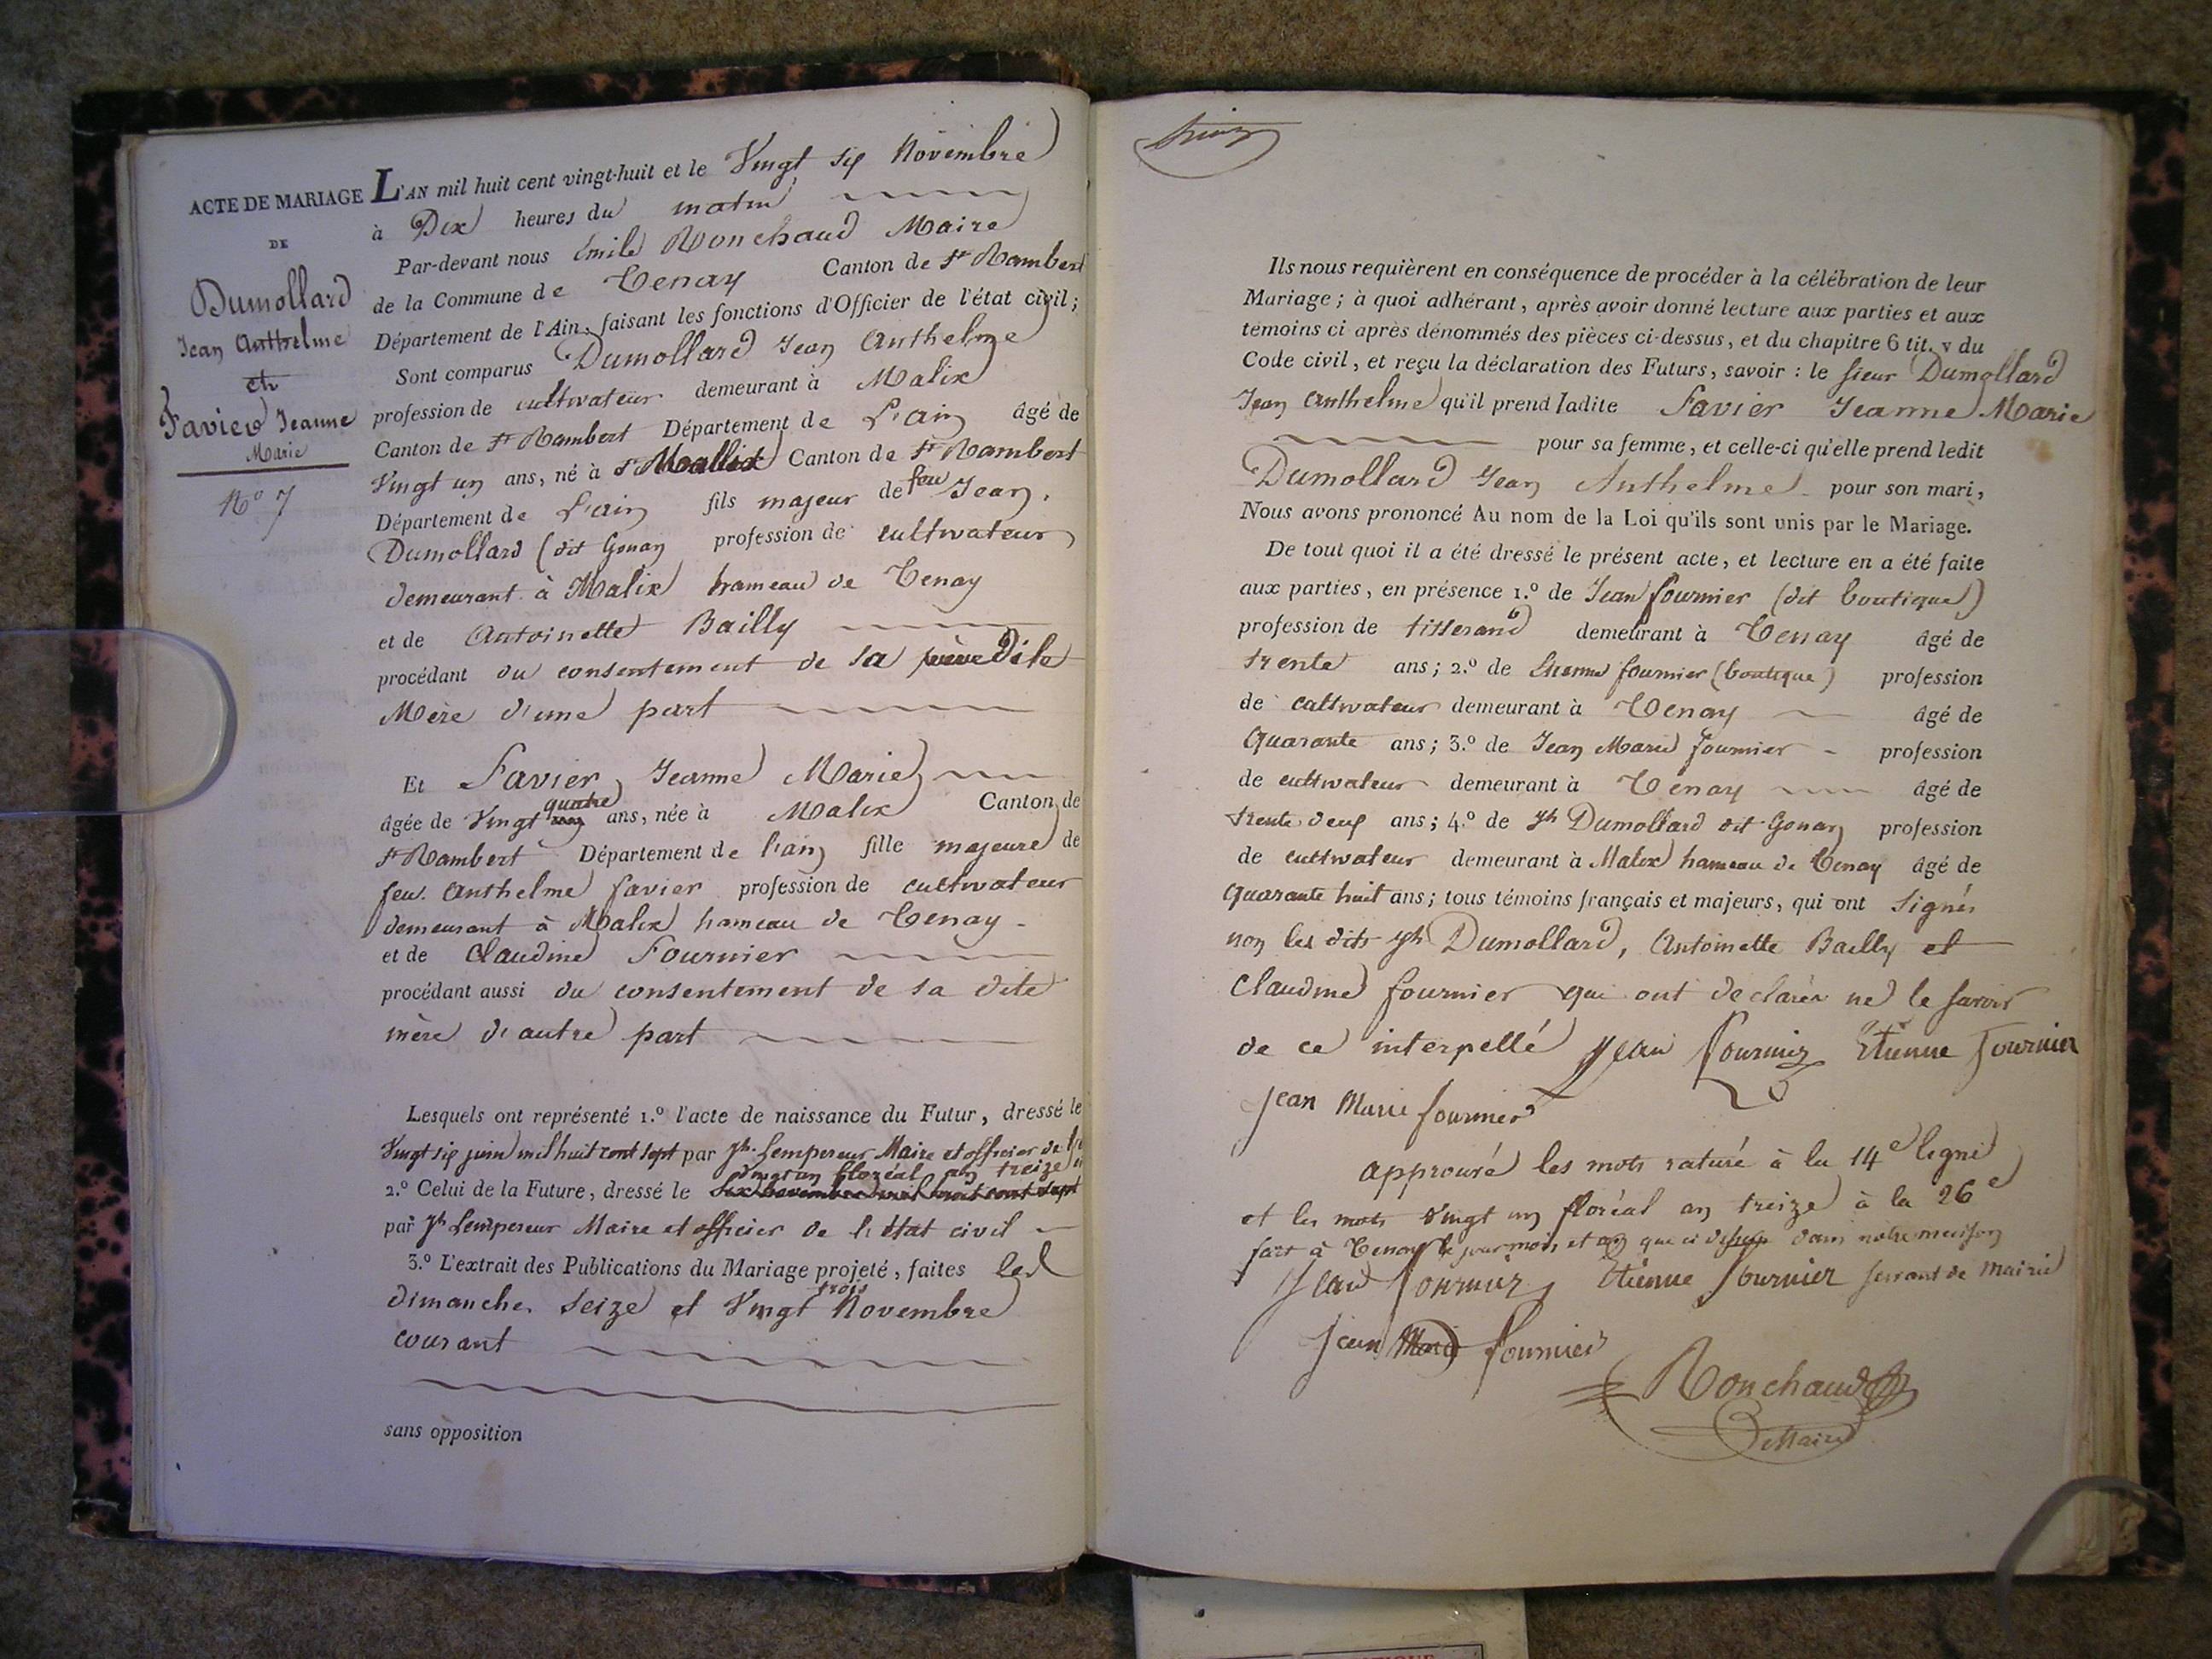 ACTE DE MARIAGE
DE
Dumollard
Jean Anthelme
et
Favier Jeanne
Marie
N.o 7
L'AN mil huit cent vingt-huit et le Vingt six Novembre
à Dix heures du matin
Par-devant nous Émile Ronchaud Maire
de la Commune de Tenay Canton de St Rambert
Département de l'Ain, faisant les fonctions d'Officier de l'état civil ;
Sont comparus Dumollard Jean Anthelme
profession de cultivateur demeurant à Malix
Canton de St Rambert Département de L'ain âgé de
Vingt un ans, né à Mallix Canton de St Rambert
Département de L'ain fils majeur de feu Jean
Dumollard (dit Gonan profession de cultivateur
demeurant à Malix hameau de Tenay
et de Antoinette Bailly
procédant du consentement de sa Dite
Mère d'une part
Et Favier Jeanne Marie
âgée de Vingt quatre ans, née à Malix Canton de
St Rambert Département de l'ain fille majeure de
feu Anthelme favier profession de cultivateur
demeurant à Malix hameau de Tenay
et de Claudine Fournier
procédant aussi du consentement de sa dite
mère d'autre part
Lesquels ont représenté 1.º l'acte de naissance du Futur, dressé le
Vingt six juin mil huit cent sept par Jh. Lempereur Maire et officier de
vingt un floréal an treize
2.º Celui de la Future, dressé le six novembre mil huit cent sept
par Jh Lempereur Maire et officier de l'état civil
3.º L'extrait des Publications du Mariage projeté, faites les
dimanches seize et Vingt trois Novembre
courant
sans opposition
Ils nous requièrent en conséquence de procéder à la célébration de leur
Mariage ; à quoi adhérant, après avoir donné lecture aux parties et aux
témoins ci après dénommés des pièces ci-dessus, et du chapitre 6 tit. v du
Code civil, et reçu la déclaration des Futurs, savoir : le sieur Dumollard
Jean Anthelme qu'il prend ladite Favier Jeanne Marie
pour sa femme, et celle-ci qu'elle prend ledit
Dumollard Jean Anthelme pour son mari,
Nous avons prononcé Au nom de la Loi qu'ils sont unis par le Mariage.
De tout quoi il a été dressé le présent acte, et lecture en a été faite
aux parties, en présence 1.º de Jean fournier (dit boutique)
profession de tisserand demeurant à Tenay âgé de
trente ans ; 2.º de Etienne fournier (boutique) profession
de cultivateur demeurant à Tenay âgé de
Quarante ans ; 3.º de Jean Marie fournier profession
de cultivateur demeurant à Tenay âgé de
trente deux ans ; 4.º de Jh Dumollard dit Gonan profession
de cultivateur demeurant à Malix hameau de Tenay âgé de
Quarante huit ans ; tous témoins français et majeurs, qui ont signés
non les dits Jh Dumollard, Antoinette Bailly et
Claudine fournier qui ont declarés ne le savoir
de ce interpellé Jean fournier Etienne Fournier
jean Marie fournier
approuvé les mots raturé à la 14e ligne
et les mots vingt un floréal an treize à la 26e
fait à Tenay le jour mois et an que ci dessus dans notre maison
Jean fournier Etienne fournier servant de mairie
jean Marie fournier
Ronchaud
Maire